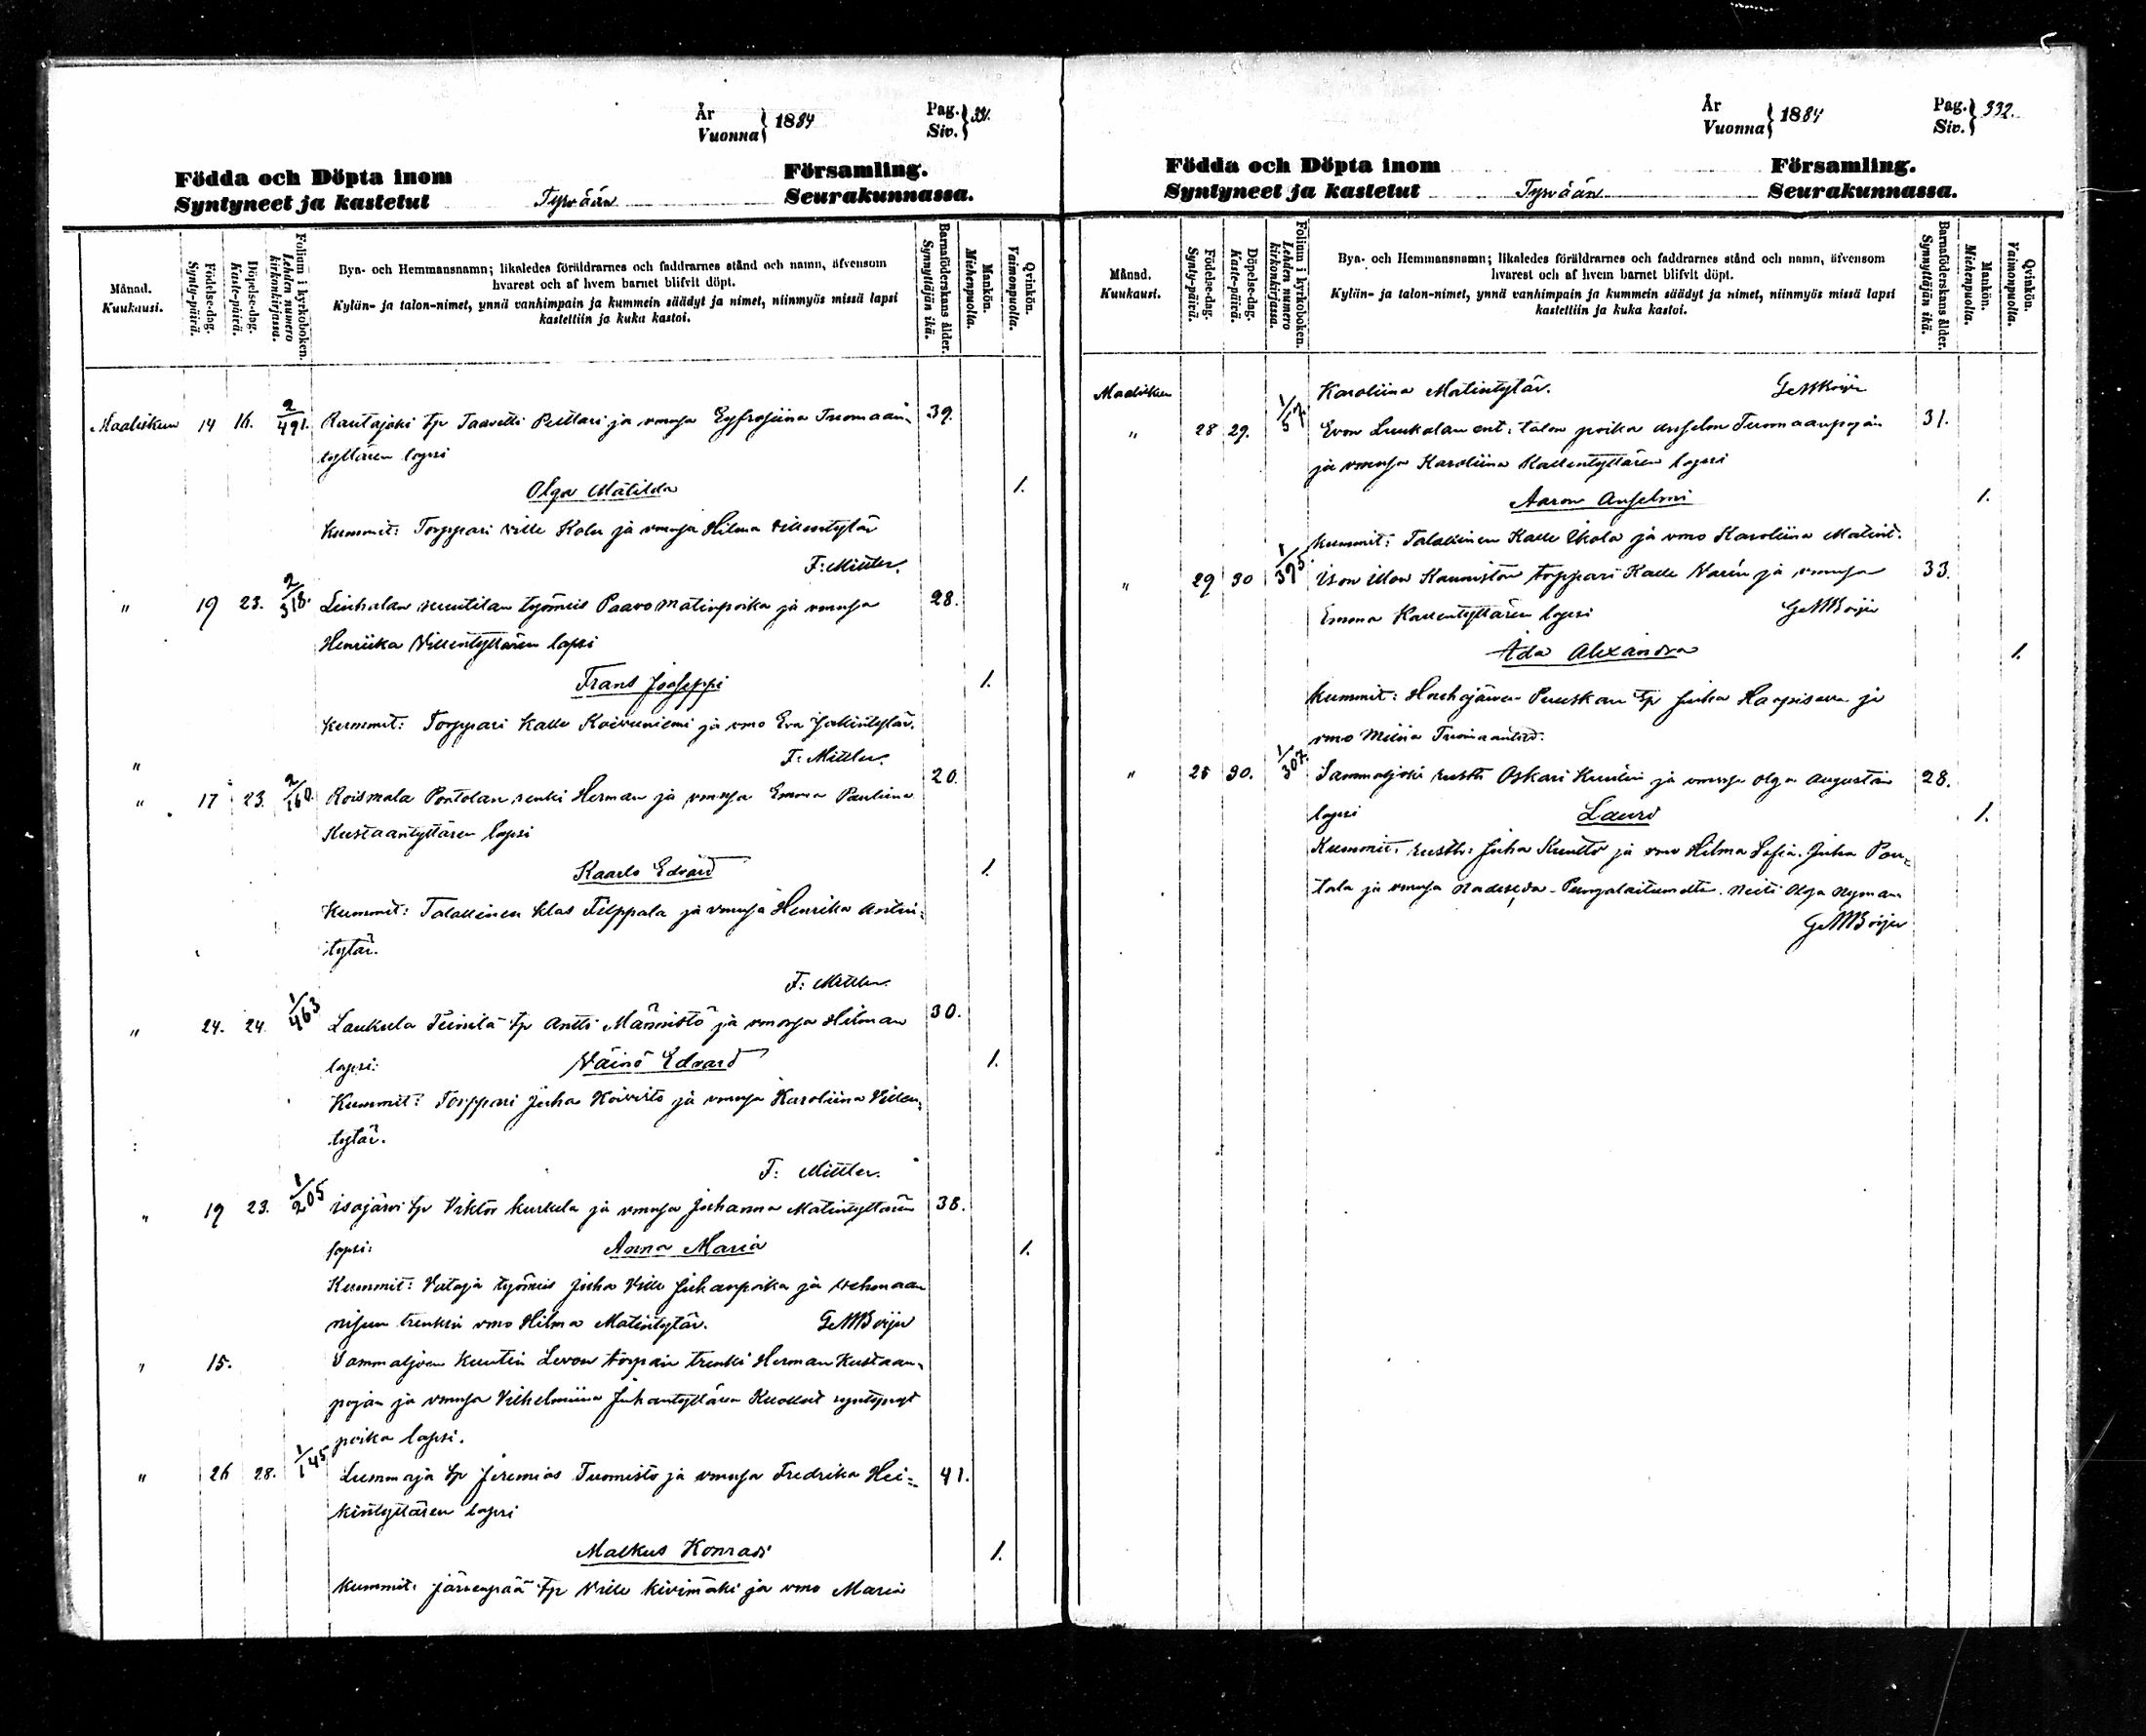 År
Vuonna } 1884
Pag.
Siv. } 331.
Födda och Döpta inom Församling.
Syntyneet ja kastetut Tyrvään Seurakunnassa.
Månad.
Kuukausi.
Födelse-dag.
Synty-päivä.
Döpelse-dag.
Kaste-päivä.
Folium i kyrkoboken.
Lehden numero
kirkonkirjassa.
Bya- och Hemmansnamn; likaledes föräldrarnes och faddrarnes stånd och namn, äfvensom
hvarest och af hvem barnet blifvit döpt.
Kylän- ja talon-nimet, ynnä vanhimpain ja kummein säädyt ja nimet, niinmyös missä lapsi
kastettiin ja kuka kastoi.
Barnaföderskans ålder.
Synnyttäjän ikä.
Mankön.
Miehenpuolia.
Qvinkön.
Vaimonpuolia.
Maaliskuu 14 16. 2/491. Rautajoki tp Taavetti Pelttari ja vmnsa Eyfrosiina Tuomaan-
tyttären lapsi 39.
Olga Matilda 1.
Kummit: Torppari Ville Kalu ja vmnsa Hilma Villentytär
F: Mittler.
" 19 23. 2/318. Liuhalan työmies Paavo Matinpoika ja vmnsa 28.
Henriika Villentyttären lapsi
Frans Jooseppi 1.
Kummit: Torppari Kalle Koivuniemi ja vmo Eva
F: Mittler.
"
" 17 23. 2/160. Roismala Pontolan renki Herman ja vmnsa Emma Pauliina 20.
Kustaantyttären lapsi
Kaarlo Edvard 1.
Kummit: Talollinen Klas Filppala ja vmnsa Henrika Antin-
tytär.
F: Mittler.
" 24. 24. 1/463 Laukula tp Antti Männistö ja vmnsa Hilman 30.
lapsi: Väinö Edvard 1.
Kummit: Torppari Juha Koivisto ja vmnsa Karoliina Villen-
tytär.
F: Mittler.
" 19 23. 1/205 Isojärvi tp Viktor Kurkela ja vmnsa Johanna Matintyttären 38.
lapsi: Anna Maria 1.
Kummit: Vataja työmies Juha Ville Juhanpoika ja
vmo Hilma Matintytär. G M Boijer
" 15. Sammaljoen Kuutin Levon torpan trenki Herman Kustaan-
pojan ja vmnsa Vilhelmiina Juhantyttären Kuollut syntynyt
poika lapsi.
" 26 28. 1/145 Lummaja tp Jeremias Tuomisto ja vmnsa Fredrika Hei- 41.
kintyttären lapsi
Malkus Konradi 1.
Kummit: Järvenpää tp Ville Kivimäki ja vmo Maria
År
Vuonna } 1884
Pag.
Siv. } 332.
Födda och Döpta inom Församling.
Syntyneet ja kastetut Tyrvään Seurakunnassa.
Månad.
Kuukausi.
Födelse-dag.
Synty-päivä.
Döpelse-dag.
Kaste-päivä.
Folium i kyrkoboken.
Lehden numero
kirkonkirjassa.
Bya- och Hemmansnamn; likaledes föräldrarnes och faddrarnes stånd och namn, äfvensom
hvarest och af hvem barnet blifvit döpt.
Kylän- ja talon-nimet, ynnä vanhimpain ja kummein säädyt ja nimet, niinmyös missä lapsi
kastettiin ja kuka kastoi.
Barnaföderskans ålder.
Synnyttäjän ikä.
Mankön.
Miehenpuolia.
Qvinkön.
Vaimonpuolia.
Maaliskuu Karoliina Matintytär. G M Boijer
" 28 29. 1/57. Evon Luukalan ent: talon poika Anselm Tuomaanpojan 31.
ja vmnsa Karoliina Kallentyttären lapsi
Aaron Anselmi 1.
Kummit: Talollinen Kalle Ekola ja vmo Karoliina Matint.
" 29 30 1/395. Ison illon Kannisto torppari Kalle Varin ja vmnsa 33.
Emma Kallentyttären lapsi G M Boijer
Ada Alexandra 1.
Kummit: Houhajärven Puuskan tp Juha Haapisena ja
vmo Miina Tuomaantyt.
" 25 30. 1/307. Sammaljoki rusth. Oskari Kuutin ja vmnsa Olga Augustan 28.
lapsi Lauri 1.
Kummit: rusth: Juha Kuutti ja vmo Hilma Sofia. Juha Pou-
tala ja vmnsa Nadesda Neiti Olga Nyman
G M Boijer